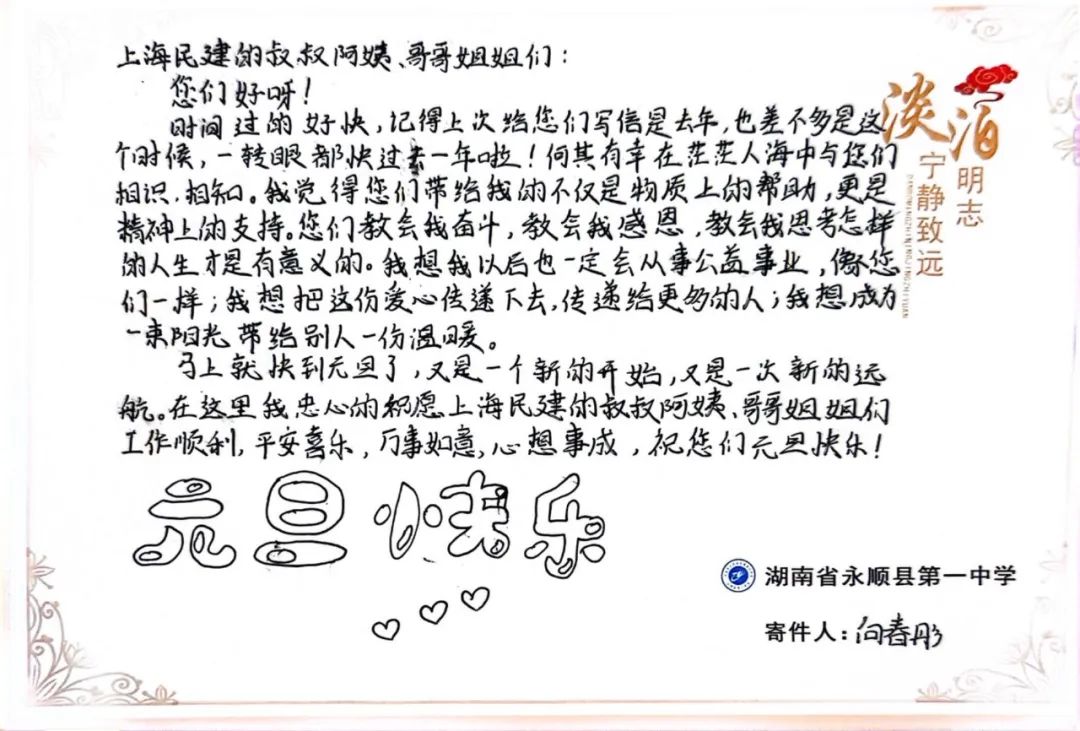 上海民建的叔叔阿姨、哥哥姐姐们：
您们好呀！
时间过的好快，记得上次给您们写信是去年，也差不多是这
个时候，一转眼都快过去一年啦！何其有幸在茫茫人海中与您们
相识、相知。我觉得您们带给我的不仅是物质上的帮助，更是
精神上的支持。您们教会我奋斗，教会我感恩，教会我思考怎样
的人生才是有意义的。我想我以后也一定会从事公益事业，像您
们一样；我想把这份爱心传递下去，传递给更多的人；我想成为
一束阳光带给别人一份温暖。
马上就快到元旦了，又是一个新的开始，又是一次新的远
航。在这里我忠心的祝愿上海民建的叔叔阿姨、哥哥姐姐们
工作顺利，平安喜乐，万事如意，心想事成，祝您们元旦快乐！
元旦快乐
淡泊
明志
宁静致远
湖南省永顺县第一中学
寄件人：向春彤